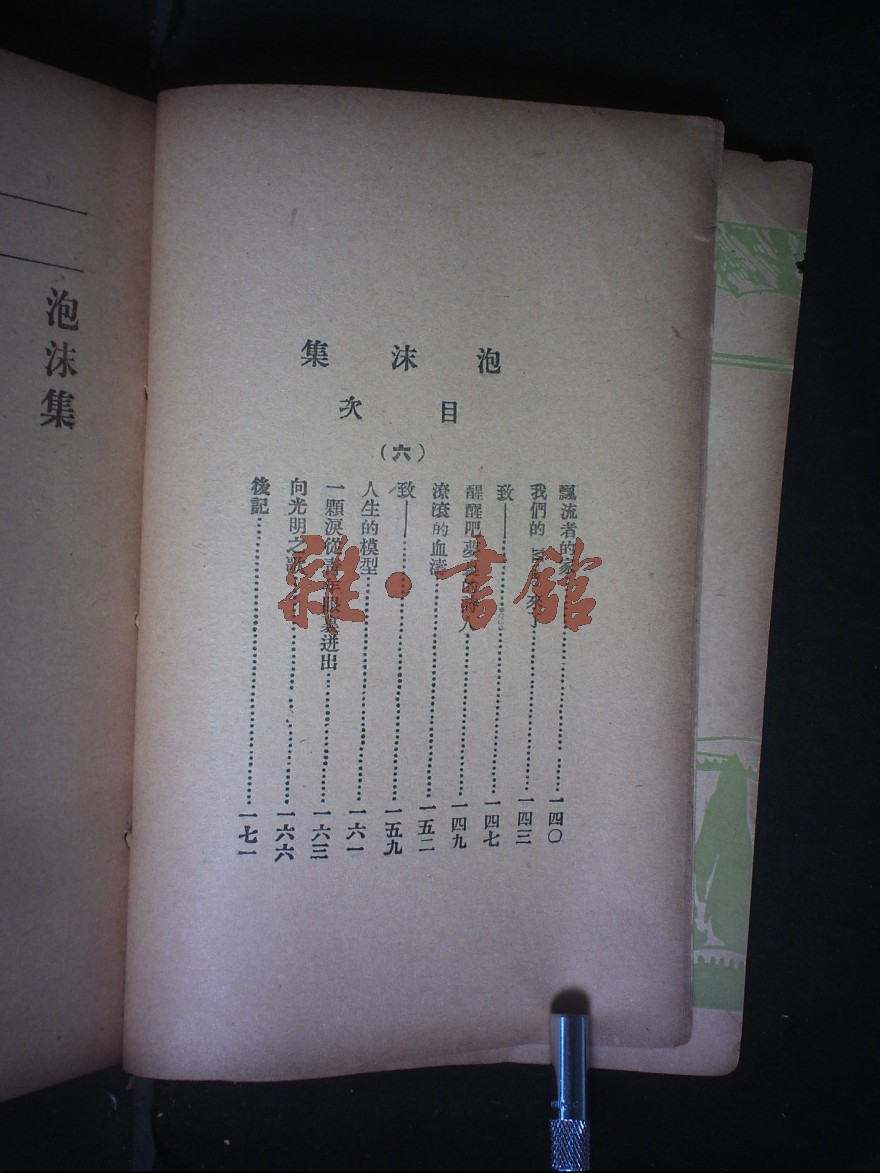 泡沫集
泡沫集
目次
(六)
飄流者的家……一四〇
我們的 來……一四三
致——……一四七
醒醒吧夢 的詩人……一四九
滾滾的血濤……一五二
致——……一五九
人生的模型……一六一
一顆淚從青年眼裏迸出……一六三
向光明之歌……一六六
後記……一七一
雜·書館